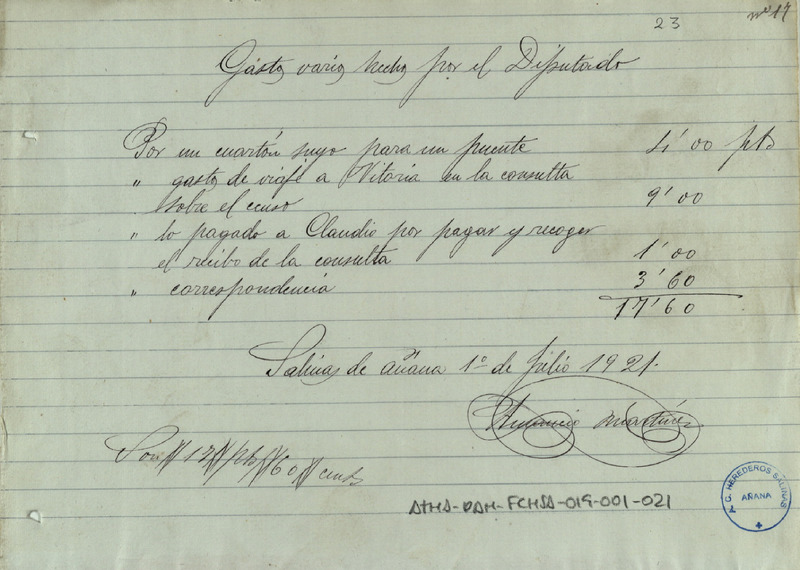 23
nº 17
Gastos varios hechos por el Diputado
Por un cuartón suyo para un puente 4'00 pts
" gasto de viaje a Vitoria en la consulta
sobre el censo 9'00
" lo pagado a Claudio por pagar y recoger
el recibo de la consulta 1'00
" correspondencia 3'60
17'60
Salinas de Añana 1º de Julio 1921.
Amancio Martínez
Son 17 pts 60 cents
ATHA-DAH-FCHSA-019-001-021
A.C. HEREDEROS SALINAS
AÑANA